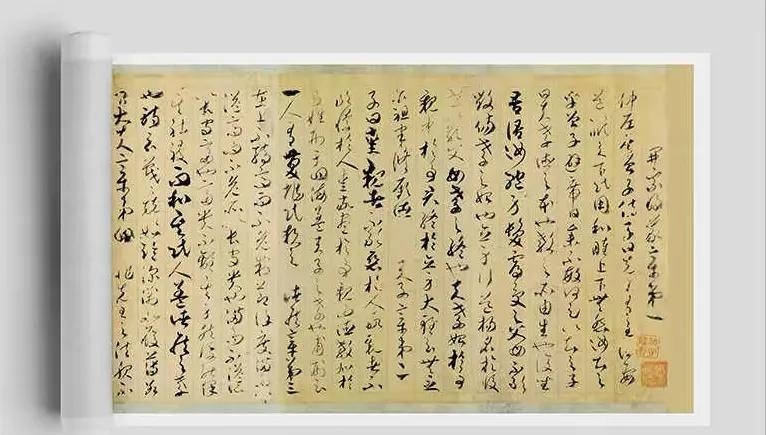 開宗明義章第一
仲尼居曾子侍子曰先王有至德要
道以順天下民用和睦上下無怨汝知之
乎曾子避席曰參不敏何足以知之子
曰夫孝德之本也教之所由生也復坐
吾語汝身體髮膚受之父母不敢
毀傷孝之始也立身行道揚名於後
世以顯父母孝之終也夫孝始於事
親中於事君終於立身大雅云無念
爾祖聿脩厥德 天子章第二
子曰愛親者不敢惡於人敬親者不
敢慢於人愛敬盡於事親而德教加於
百姓刑于四海蓋天子之孝也甫刑云
一人有慶兆民賴之 諸侯章第三
在上不驕高而不危制節謹度滿而不
溢高而不危所以長守貴也滿而不溢所
以長守富也富貴不離其身然後能保
其社稷而和其民人蓋諸侯之孝
也詩云戰戰兢兢如臨深淵如履薄冰
卿大夫章第四 非先王之法服不